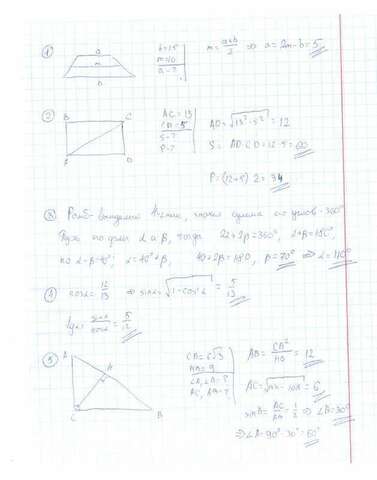 1
a
m
b
b=15
m=10
a-?
m = (a+b)/2 ⇒ a = 2m-b = 5
2
B C
A D
AC = 13
CD = 5
S-?
P-?
AD = √(13²-5²) = 12
S = AD·CD = 12·5 = 60
P = (12+5)·2 = 34
3 Ромб- выпуклый 4-х-ник, значит сумма его углов = 360°
Пусть его углы α и β, тогда 2α+2β=360°, α+β=180°,
но α-β=40°; α=40°+β, 40+2β=180, β=70° ⇒ α=110°
4 cosα = 12/13 ⇒ sinα = √(1-cos²α) = 5/13
tgα = sinα/cosα = 5/12
5
A
H
C B
CB = 6√3
HB = 9
∠B, ∠A-?
AC, AB-?
AB = CB²/HB = 12
AC = = 6
sinB = AC/AB = 1/2 ⇒ ∠B=30°
⇒ ∠A = 90°-30° = 60°